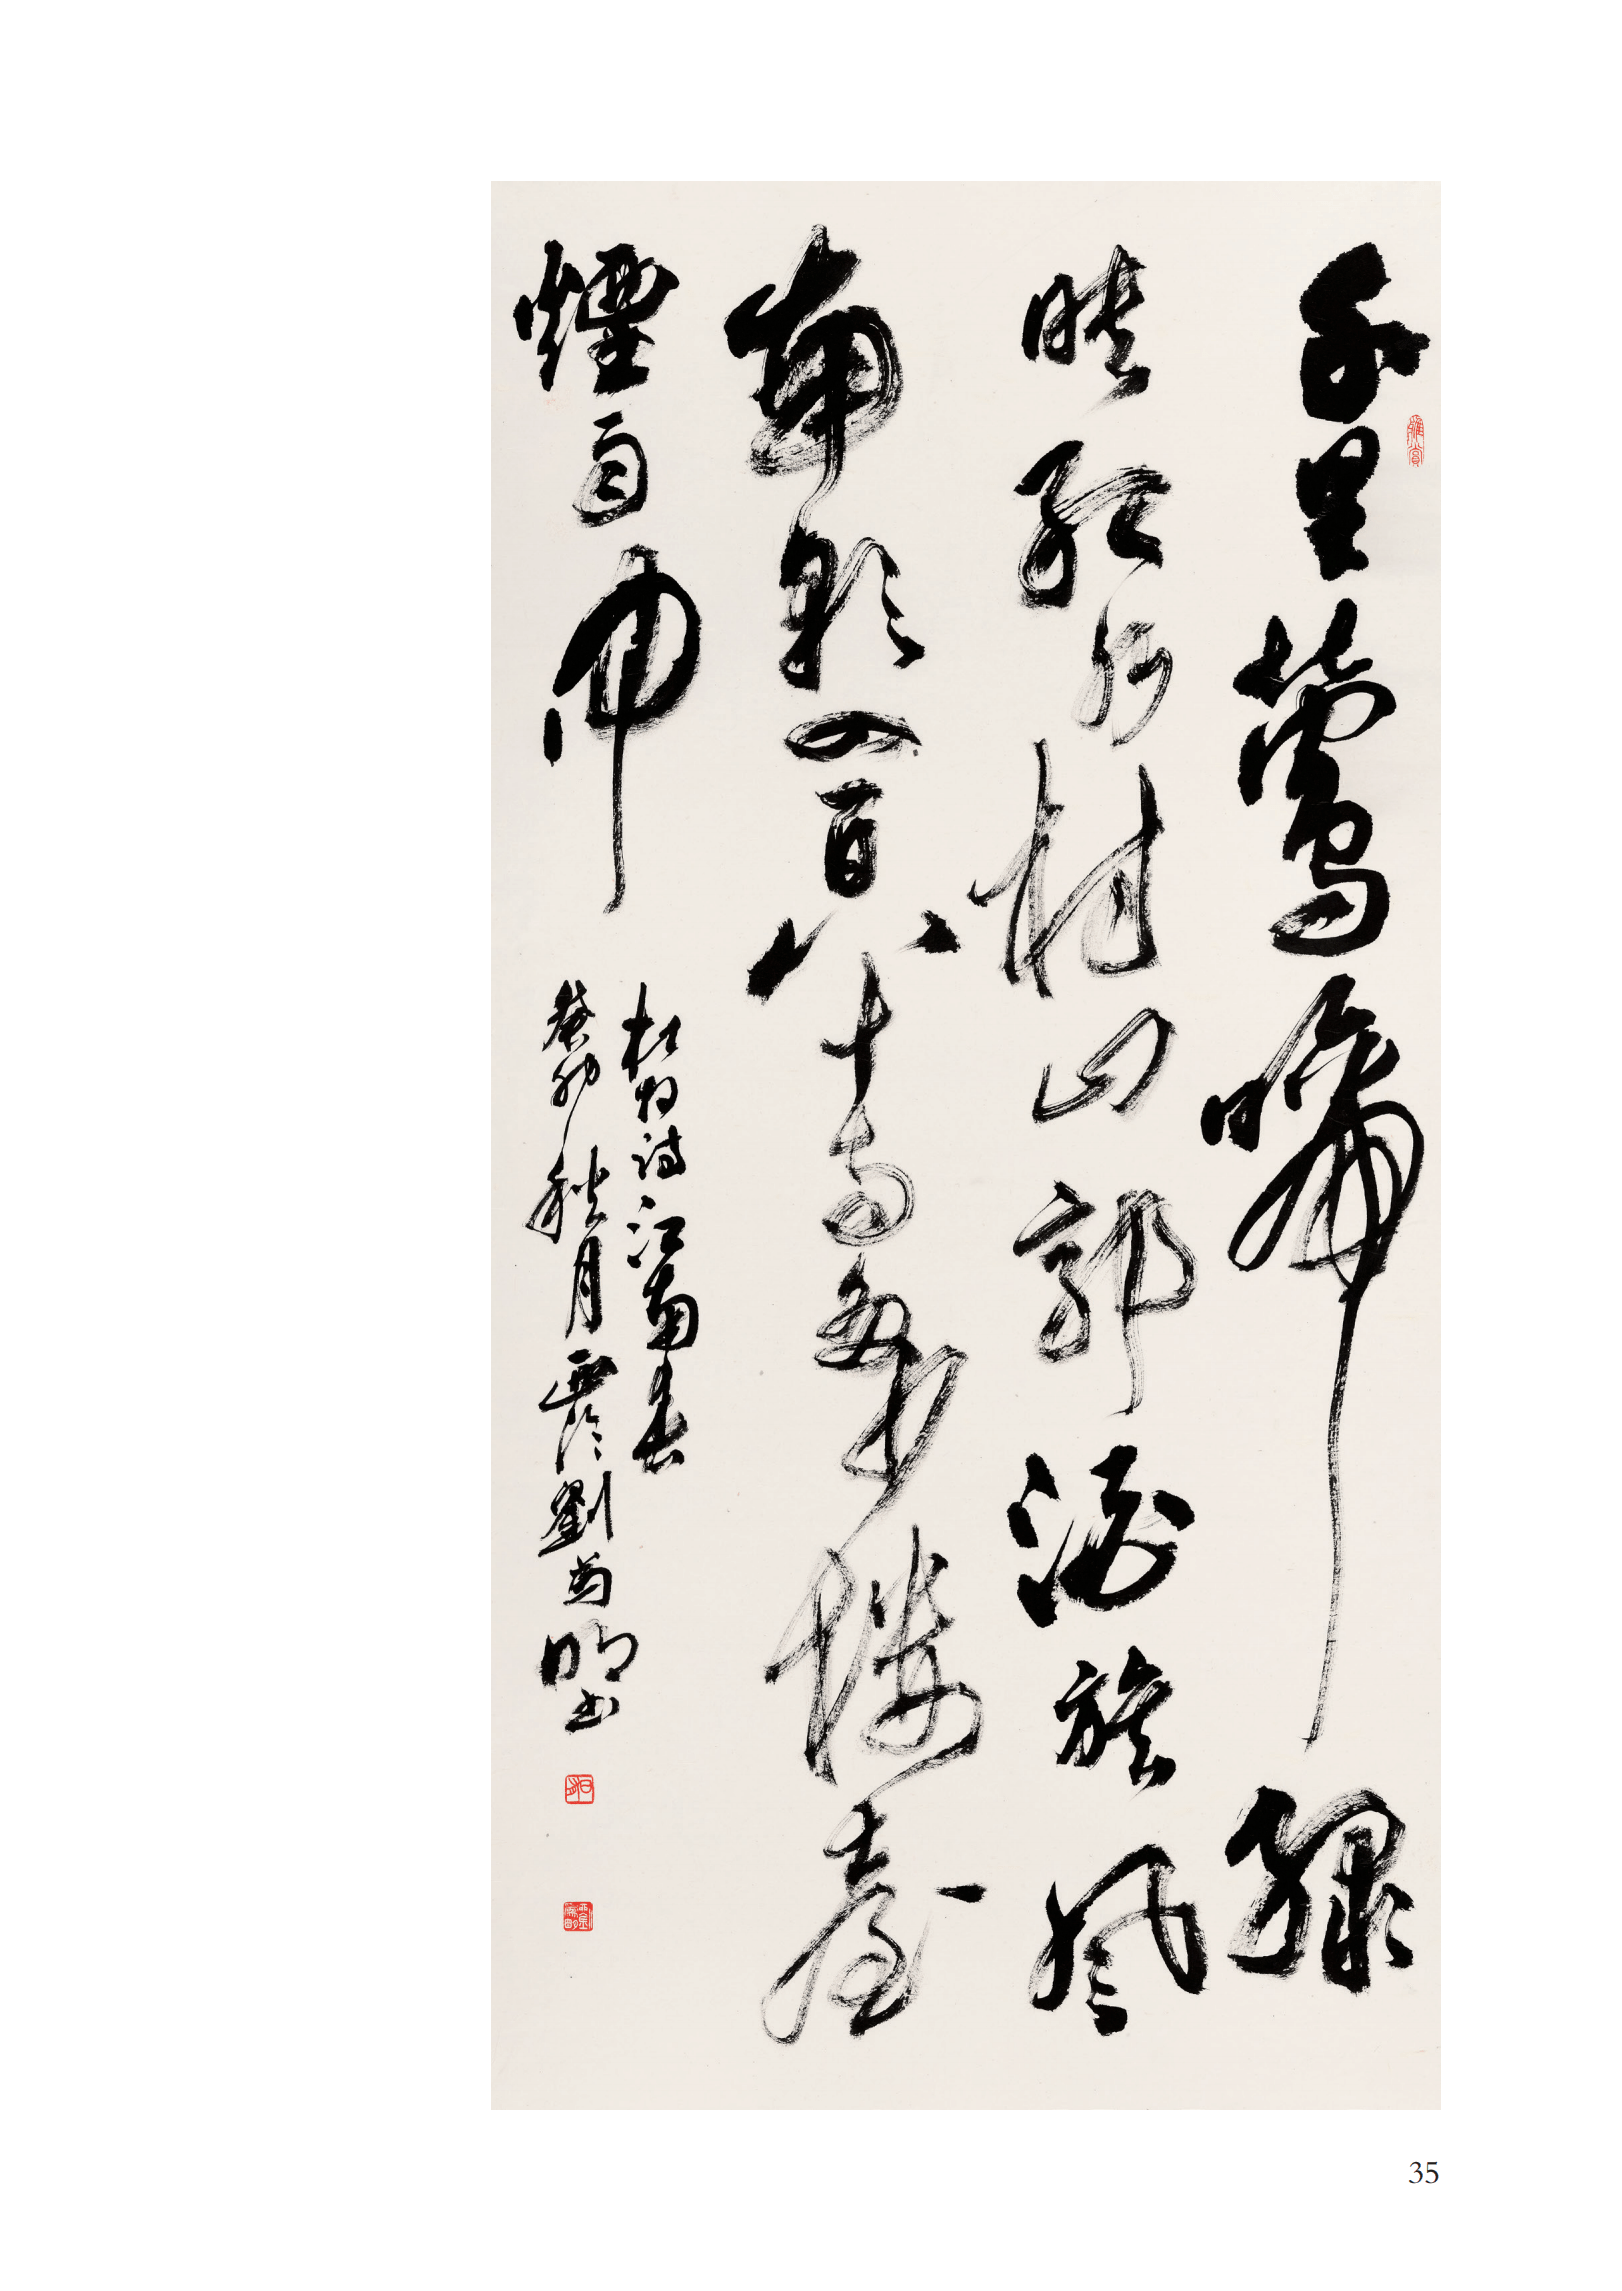 千里鶯啼綠
映紅水村山郭酒旗風
南朝四百八十寺多少樓臺
煙雨中
杜牧詩江南春
癸卯秋月西泠劉尚明書
雅賞
35